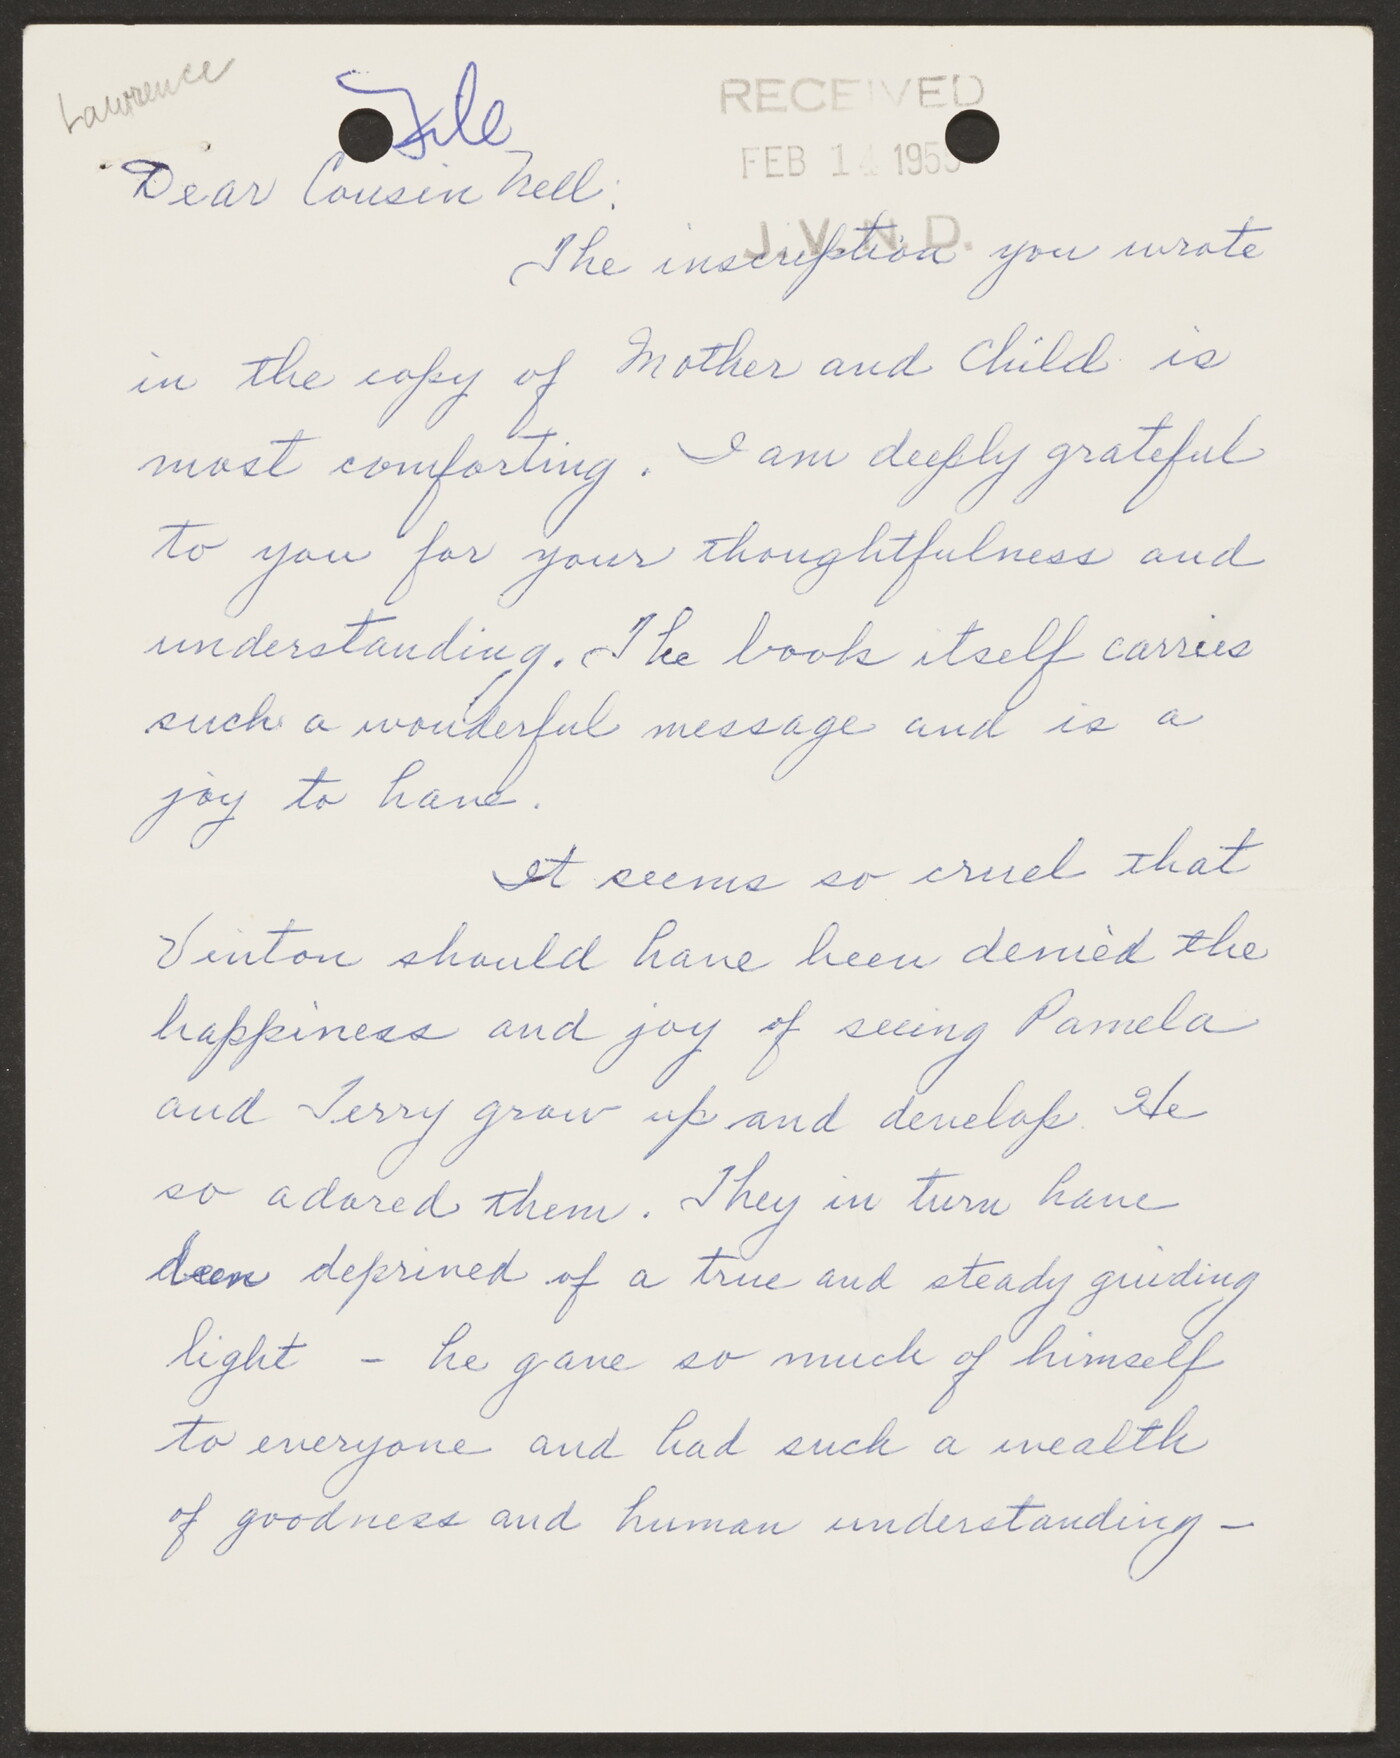 Lawrence
File
RECEIVED
FEB 14 1955
J.V.N.D.
Dear Cousin Nell:
The inscription you wrote
in the copy of Mother and Child is
most comforting. I am deeply grateful
to you for your thoughtfulness and
understanding. The book itself carries
such a wonderful message and is a
joy to have.
It seems so cruel that
Vinton should have been denied the
happiness and joy of seeing Pamela
and Terry grow up and develop. He
so adored them. They in turn have
been deprived of a true and steady guiding
light - he gave so much of himself
to everyone and had such a wealth
of goodness and human understanding -